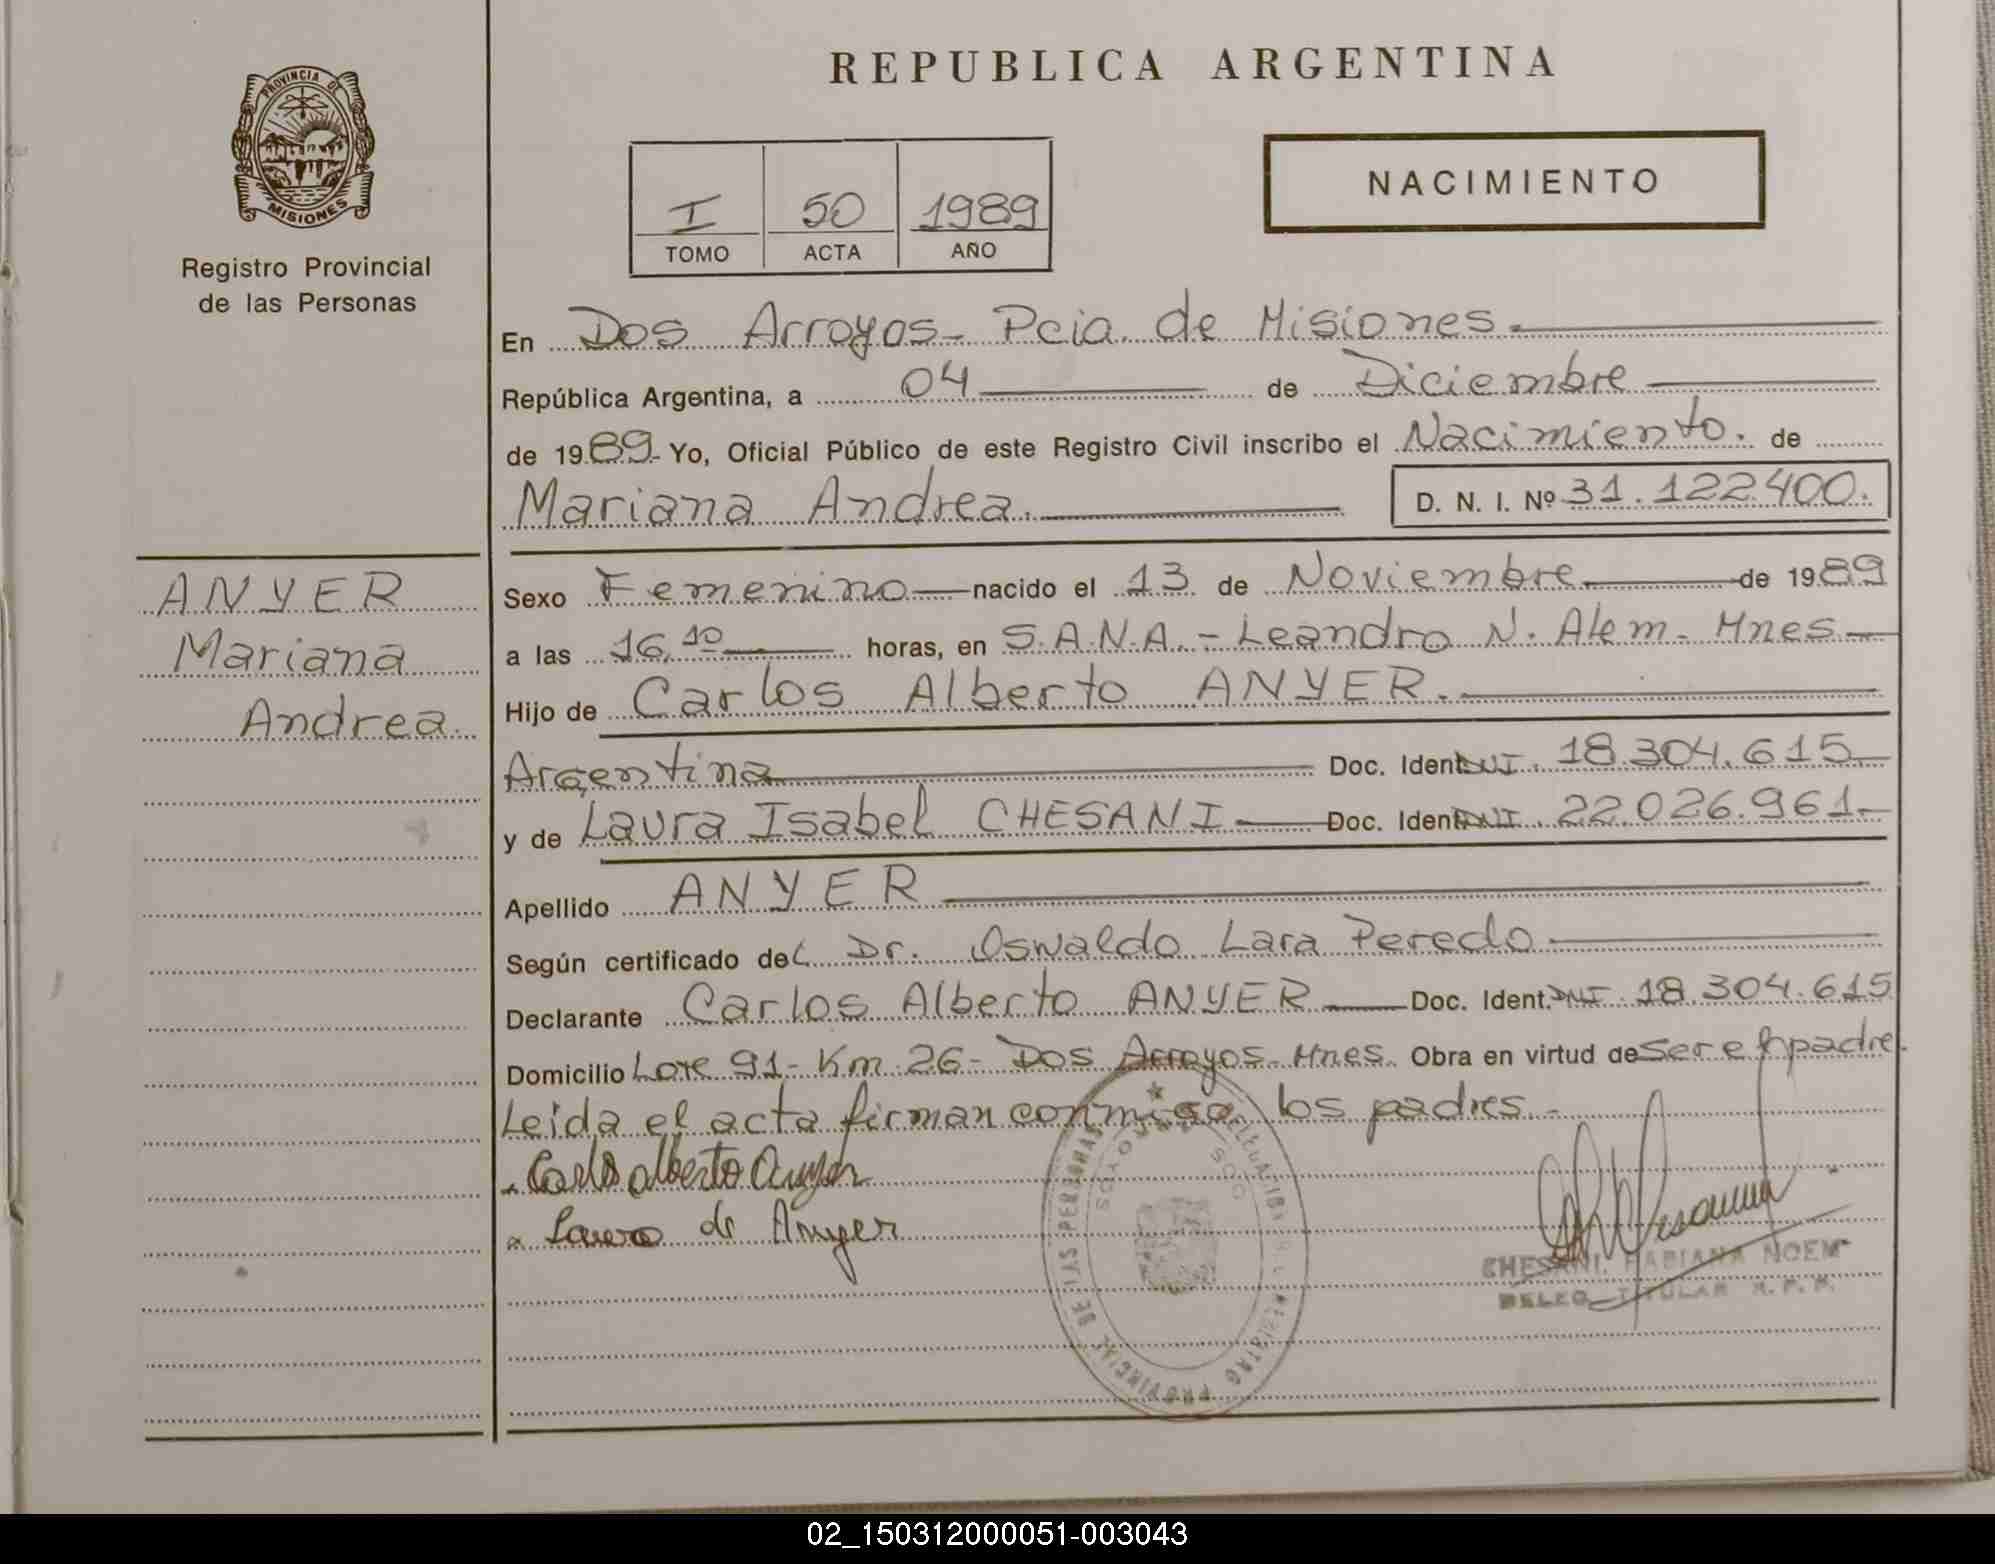 PROVINCIA DE
MISIONES
Registro Provincial
de las Personas
ANYER
Mariana
Andrea.
REPUBLICA ARGENTINA
I 50 1989
TOMO ACTA AÑO
NACIMIENTO
En Dos Arroyos- Pcia. de Misiones.
República Argentina, a 04 de Diciembre
de 1989. Yo, Oficial Público de este Registro Civil inscribo el Nacimiento. de
Mariana Andrea. D. N. I. Nº 31.122.400.
Sexo Femenino nacido el 13 de Noviembre de 1989
a las 16,10 horas, en S.A.N.A. - Leandro N. Alem- Mnes
Hijo de Carlos Alberto ANYER.
Argentina Doc. Ident. DNI. 18.304.615
y de Laura Isabel CHESANI Doc. Ident. DNI. 22.026.961-
Apellido ANYER
Según certificado del Dr. Oswaldo Lara Peredo
Declarante Carlos Alberto ANYER Doc. Ident. DNI. 18.304.615
Domicilio Lote 91- Km 26- Dos Arroyos- Mnes. Obra en virtud de ser el padre.
Leida el acta firman conmigo los padres.-
Carlos Alberto Anyer
Laura de Anyer
REGISTRO PROVINCIAL DE LAS PERSONAS
DOS ARROYOS
CHESANI, FABIANA NOEMI
DELEG. TITULAR R. P. P.
02_150312000051-003043